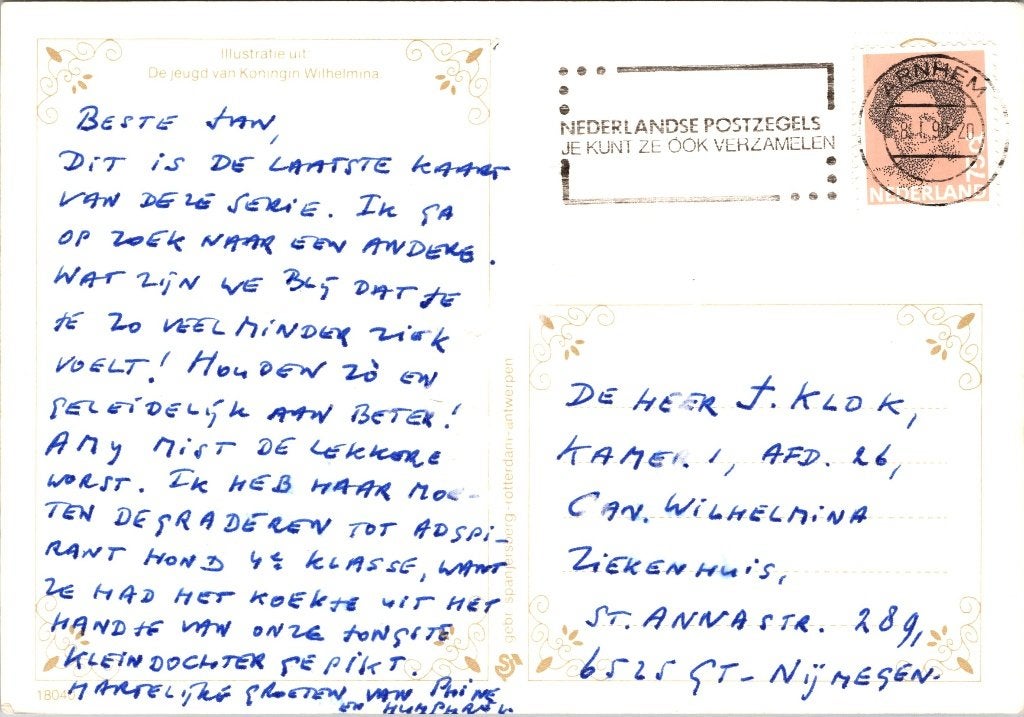 Illustratie uit:
De jeugd van Koningin Wilhelmina.
BESTE JAN,
DIT IS DE LAATSTE KAART
VAN DEZE SERIE. IK GA
OP ZOEK NAAR EEN ANDERE.
WAT ZIJN WE BLIJ DAT JE
JE ZO VEEL MINDER ZIEK
VOELT! HOUDEN ZÒ EN
GELEIDELIJK AAN BETER!
AMY MIST DE LEKKERE
WORST. IK HEB HAAR MOE-
TEN DEGRADEREN TOT ADSPI-
RANT HOND 4e KLASSE, WANT
ZE HAD HET KOEKJE UIT HET
HANDJE VAN ONZE JONGSTE
KLEINDOCHTER GEPIKT.
HARTELIJKE GROETEN, VAN PHINE
EN HUMPHREY
gebr. spanjersberg-rotterdam-antwerpen
NEDERLANDSE POSTZEGELS
JE KUNT ZE OOK VERZAMELEN
ARNHEM
NEDERLAND
DE HEER J. KLOK,
KAMER 1, AFD. 26,
CAN. WILHELMINA
ZIEKENHUIS,
ST. ANNASTR. 289,
6525 GT - NIJMEGEN.